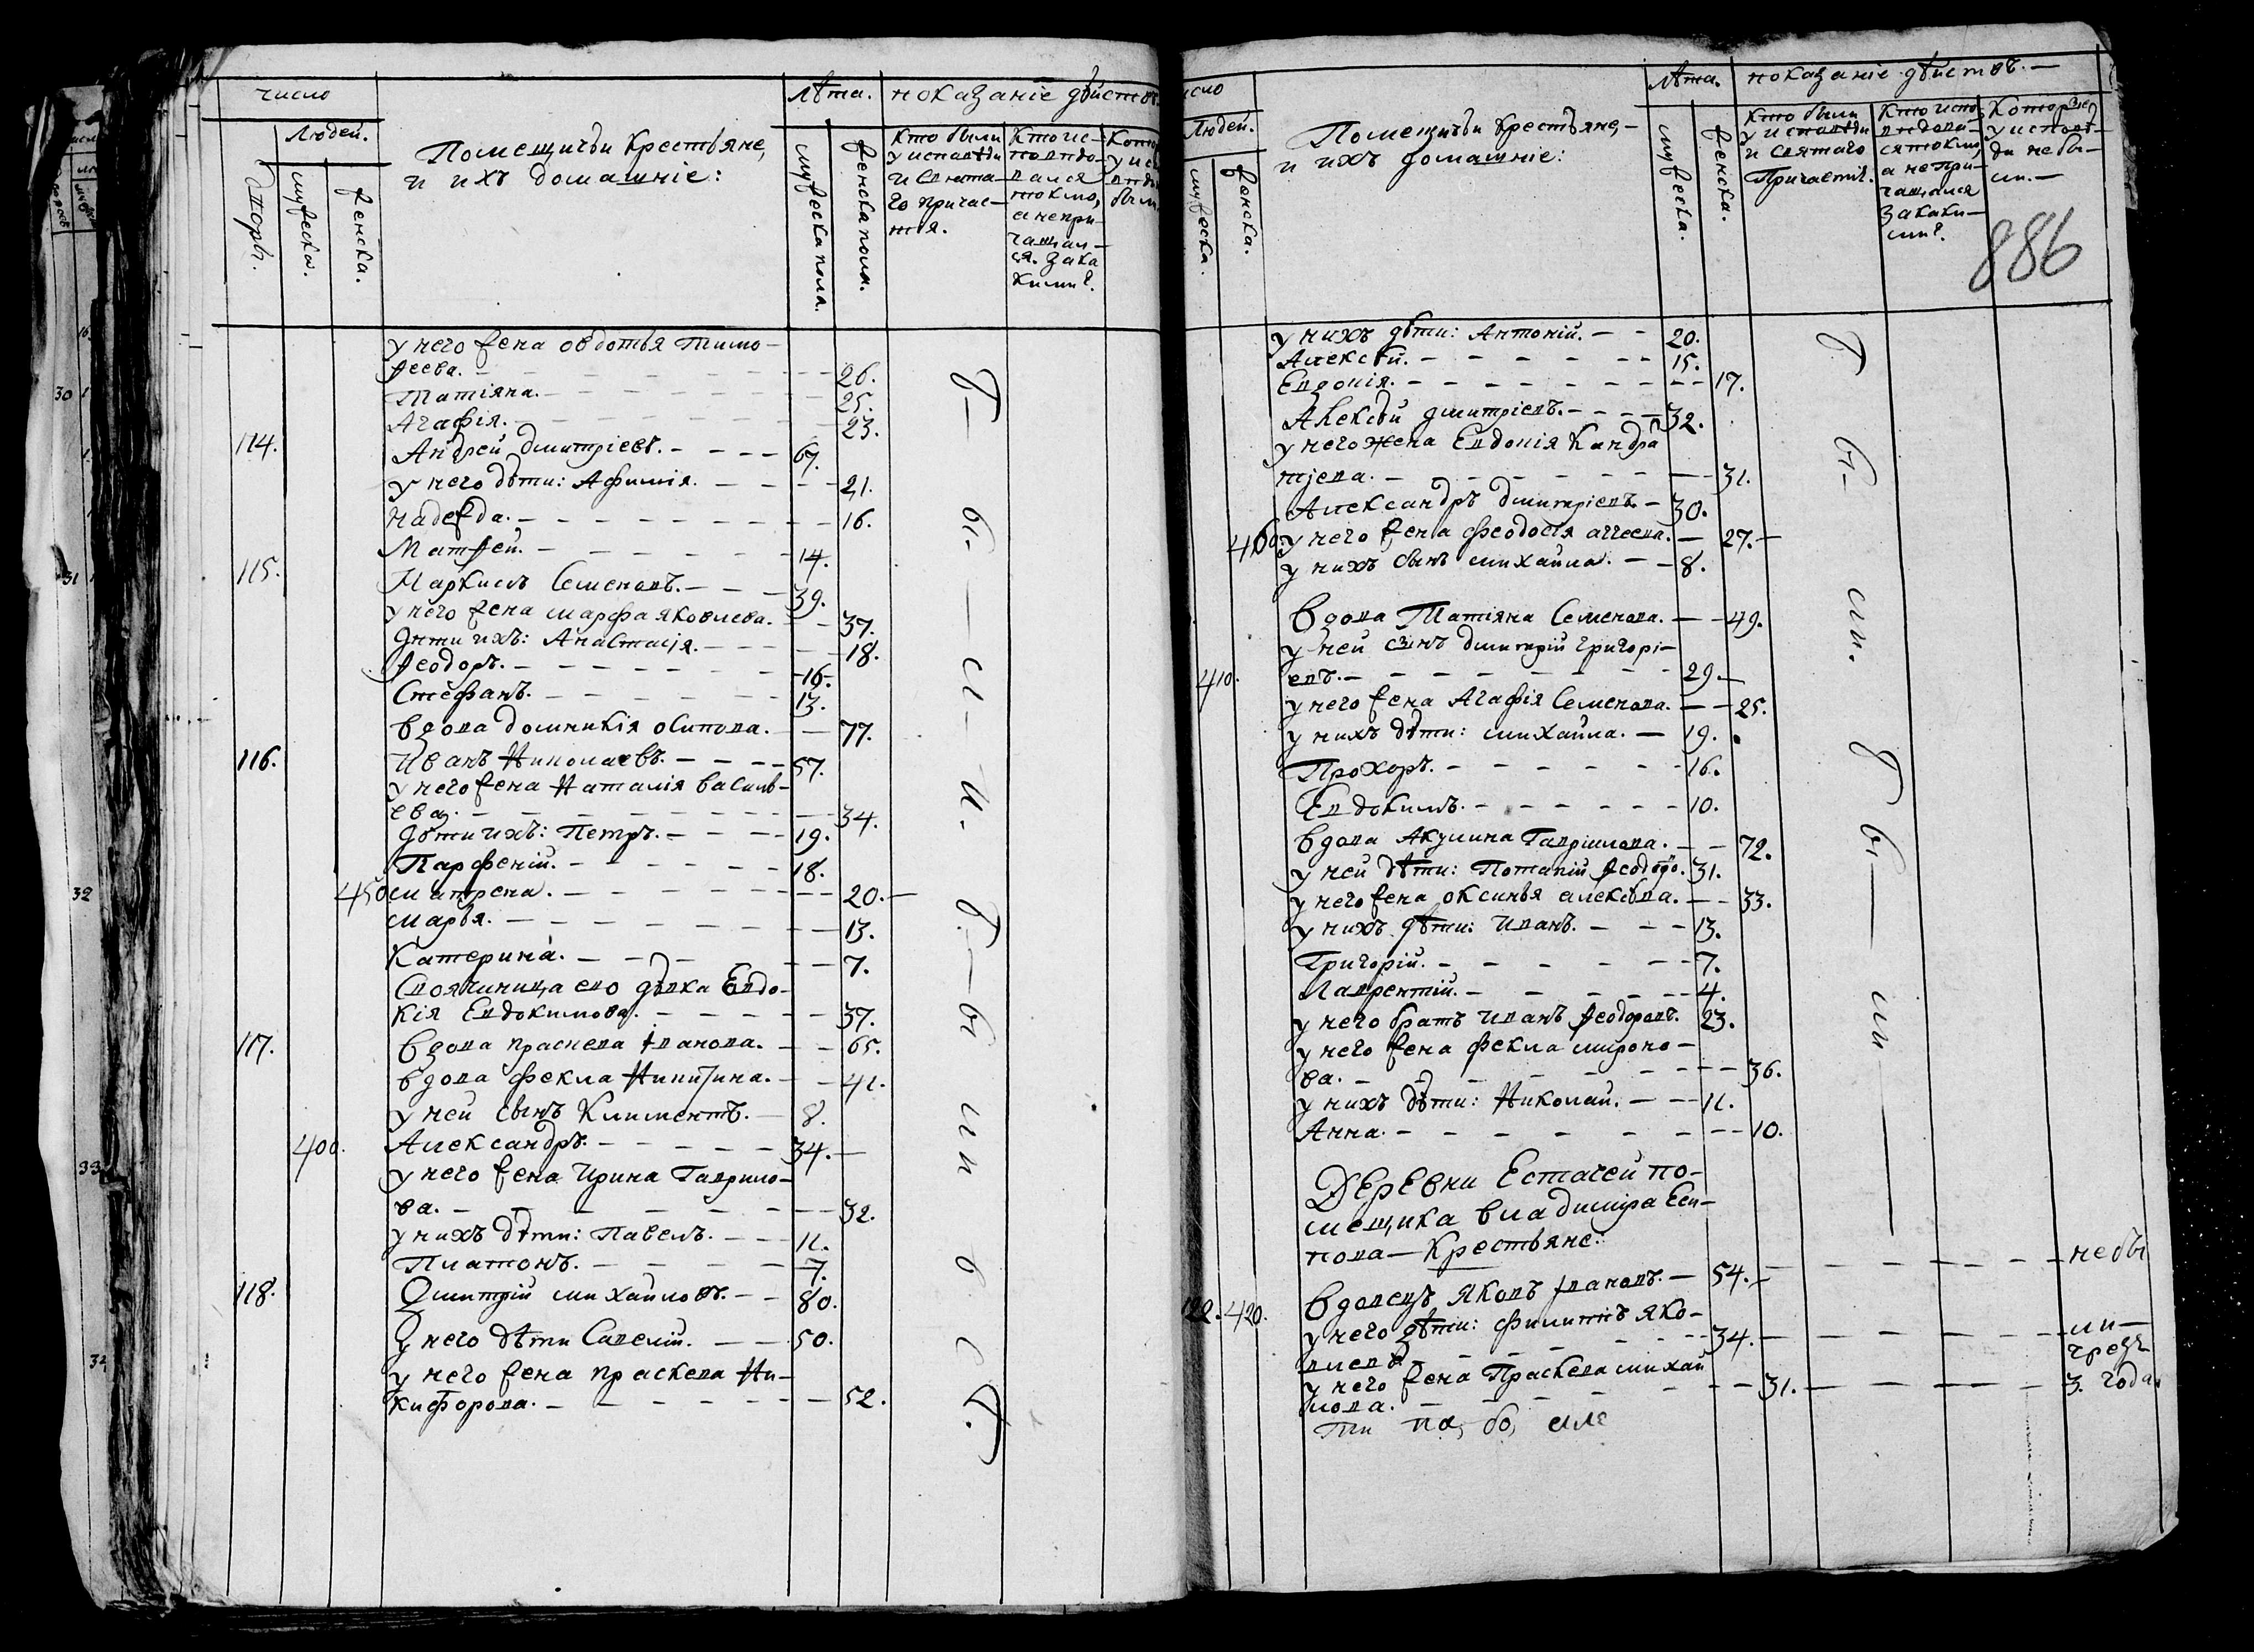 число
Людей.
дворы.
мужеска.
женска.
Помещичьи крестьяне,
и ихъ домашніе:
лѣта.
мужеска пола.
женска пола.
показаніе дѣйствъ
Кто были
у исповѣди
и свята-
го причас-
тія.
Кто ис-
повѣдо-
вался
токмо,
а непри-
чащал-
ся. зака
кими?.
у него жена овдотья тимо-
ѳеева. 26.
Татіяна. 25.
Агафія. 23.
114. Андрей дмитріевъ. 67.
у него дѣти: Афимія. 21.
надежда. 16.
Матѳей. 14.
115. Маркилъ Семеновъ. 39.
у него жена марфа яковлева. 37.
дѣти ихъ: Анастасія. 18.
ѳеодоръ. 16.
Стефанъ. 13.
вдова домникія осипова. 77.
116. Иванъ Николаевъ. 57.
у него жена Наталія василь-
ева. 34.
дѣти ихъ: Петръ. 19.
Парфеній. 18.
450 матрена. 20.
марья. 13.
Катерина. 7.
Своячиница ево дѣвка Евдо-
кія Евдокимова. 37.
117. вдова праскева іванова. 65.
вдова фекла Никитина. 41.
у ней сынъ Климентъ. 8.
400. Александръ. 34.
у него жена Ирина Гаврило-
ва. 32.
у нихъ дѣти: Павелъ. 11.
Платонъ. 7.
118. Дмитрій михайловъ. 80.
У него дѣти Савелій. 50.
у него жена праскева Ни-
кифорова. 52.
б ы л и. б ы л и в с ѣ.
число
Людей.
мужеска.
женска.
Помещичьи крестьяне,
и ихъ домашніе:
лѣта.
мужеска.
женска.
показаніе дѣйствъ.
Кто были
у исповѣди
и святаго
Причастія.
Кто испо-
вѣдова-
ся токмо,
а непри-
чащался
за каки-
ми?.
Которые
у исповѣ-
ди небы-
ли.
886
у нихъ дѣти: Антоній. 20.
Алексѣй. 15.
Евдокія. 17.
Алексѣй дмитріевъ. 32.
у него жена Евдокія Кандра
тіева. 31.
Александръ дмитріевъ. 30.
460. у него жена феодосія агеева. 27.
у нихъ сынъ михайла. 8.
вдова Татіяна Семенова. 49.
у ней сынъ дмитрій григорі-
410. евъ. 29.
у него жена Агафія Семенова. 25.
у нихъ дѣти: михайла. 19.
Прохоръ. 16.
Евдокимъ. 10.
вдова Акулина Гавріилова. 72.
у ней дѣти: Потапій ѳеодоро. 31.
у него жена оксинья алексѣева. 33.
у нихъ дѣти: Иванъ. 13.
Григорій. 7.
Лаврентій. 4.
у него братъ иванъ ѳеодоровъ. 23.
у него жена фекла мироно-
ва. 36.
у нихъ дѣти: Николай. 11.
Анна. 10.
б ы л и. б ы л и
Деревни Естачей по-
мещика владимира Еси-
пова крестьяне:
122. 420. вдовецъ яковъ івановъ. 54. небы
у него дѣти: филиппъ яко-
влевъ 34. ли
чрезъ
у него жена Праскева михай
лова. 31. 3. года.